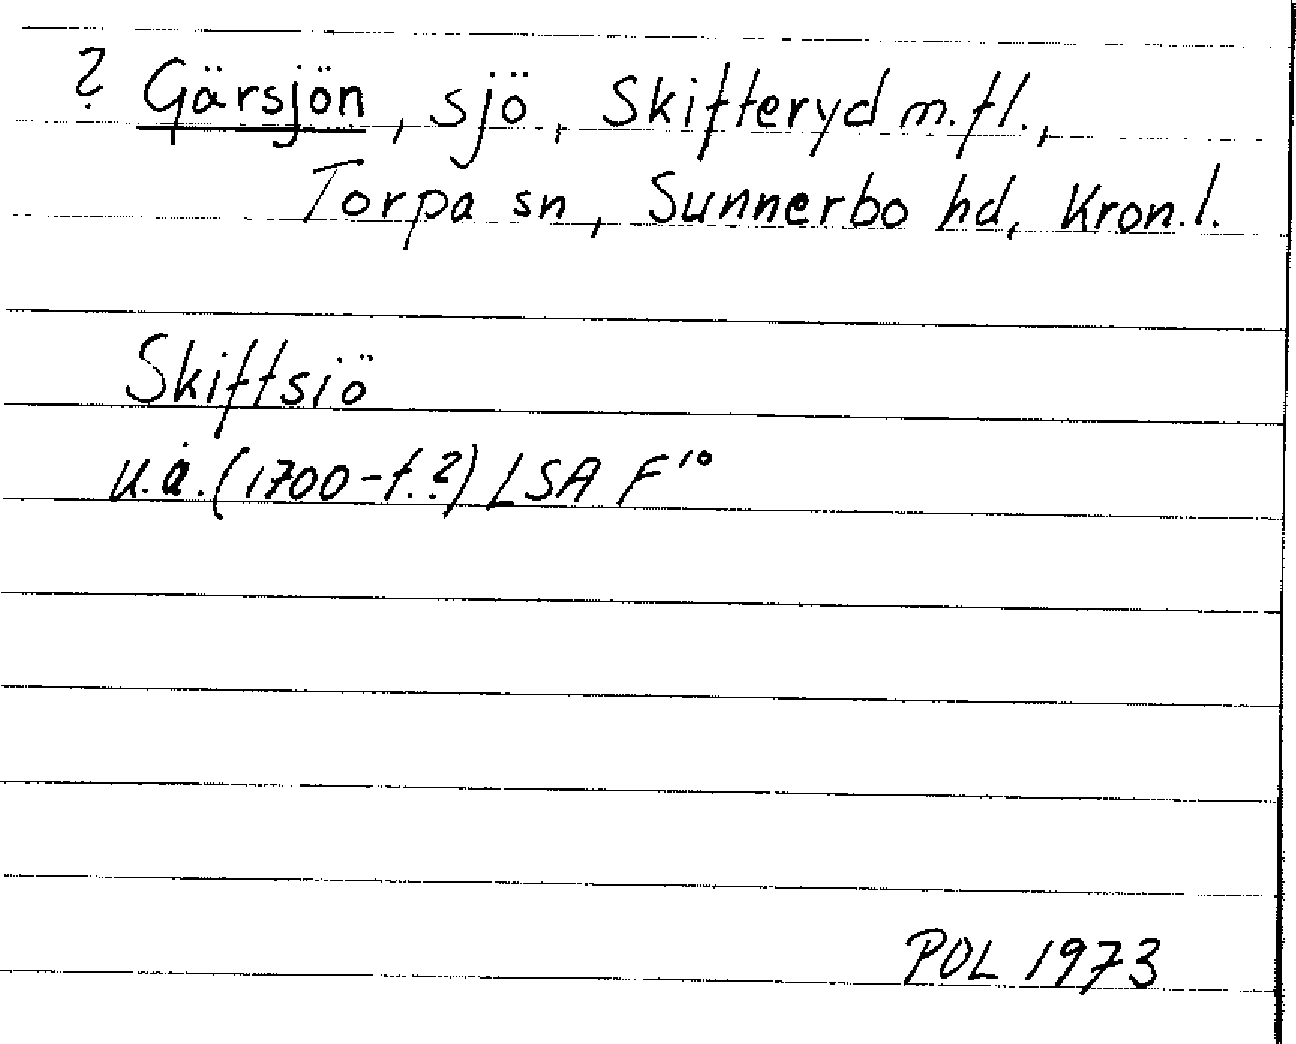 ? Gärsjön, sjö, Skifteryd m.fl.,
Torpa sn, Sunnerbo hd, Kron.l.
Skiftsiö
u.å. (1700-t.?) LSA F¹⁰
POL 1973